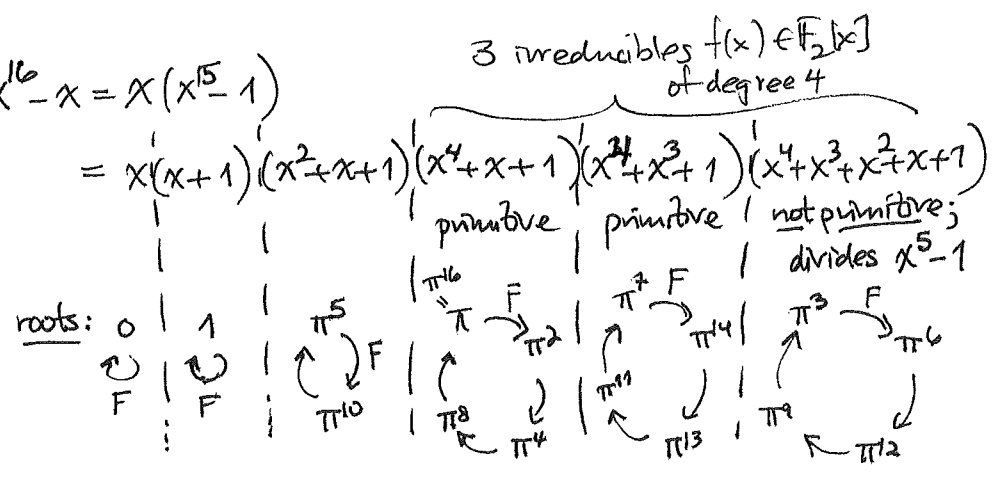 3 irreducibles f(x) ∈ 𝔽₂[x]
of degree 4
x¹⁶ - x = x(x¹⁵ - 1)
= x(x+1)(x²+x+1)(x⁴+x+1)(x⁴+x³+1)(x⁴+x³+x²+x+1)
primitive primitive not primitive;
divides x⁵-1
π¹⁶
=
roots: 0 1 π⁵ π F π² π⁷ F π¹⁴ π³ F π⁶
F F F
π¹⁰ π⁸ π⁴ π¹¹ π¹³ π⁹ π¹²